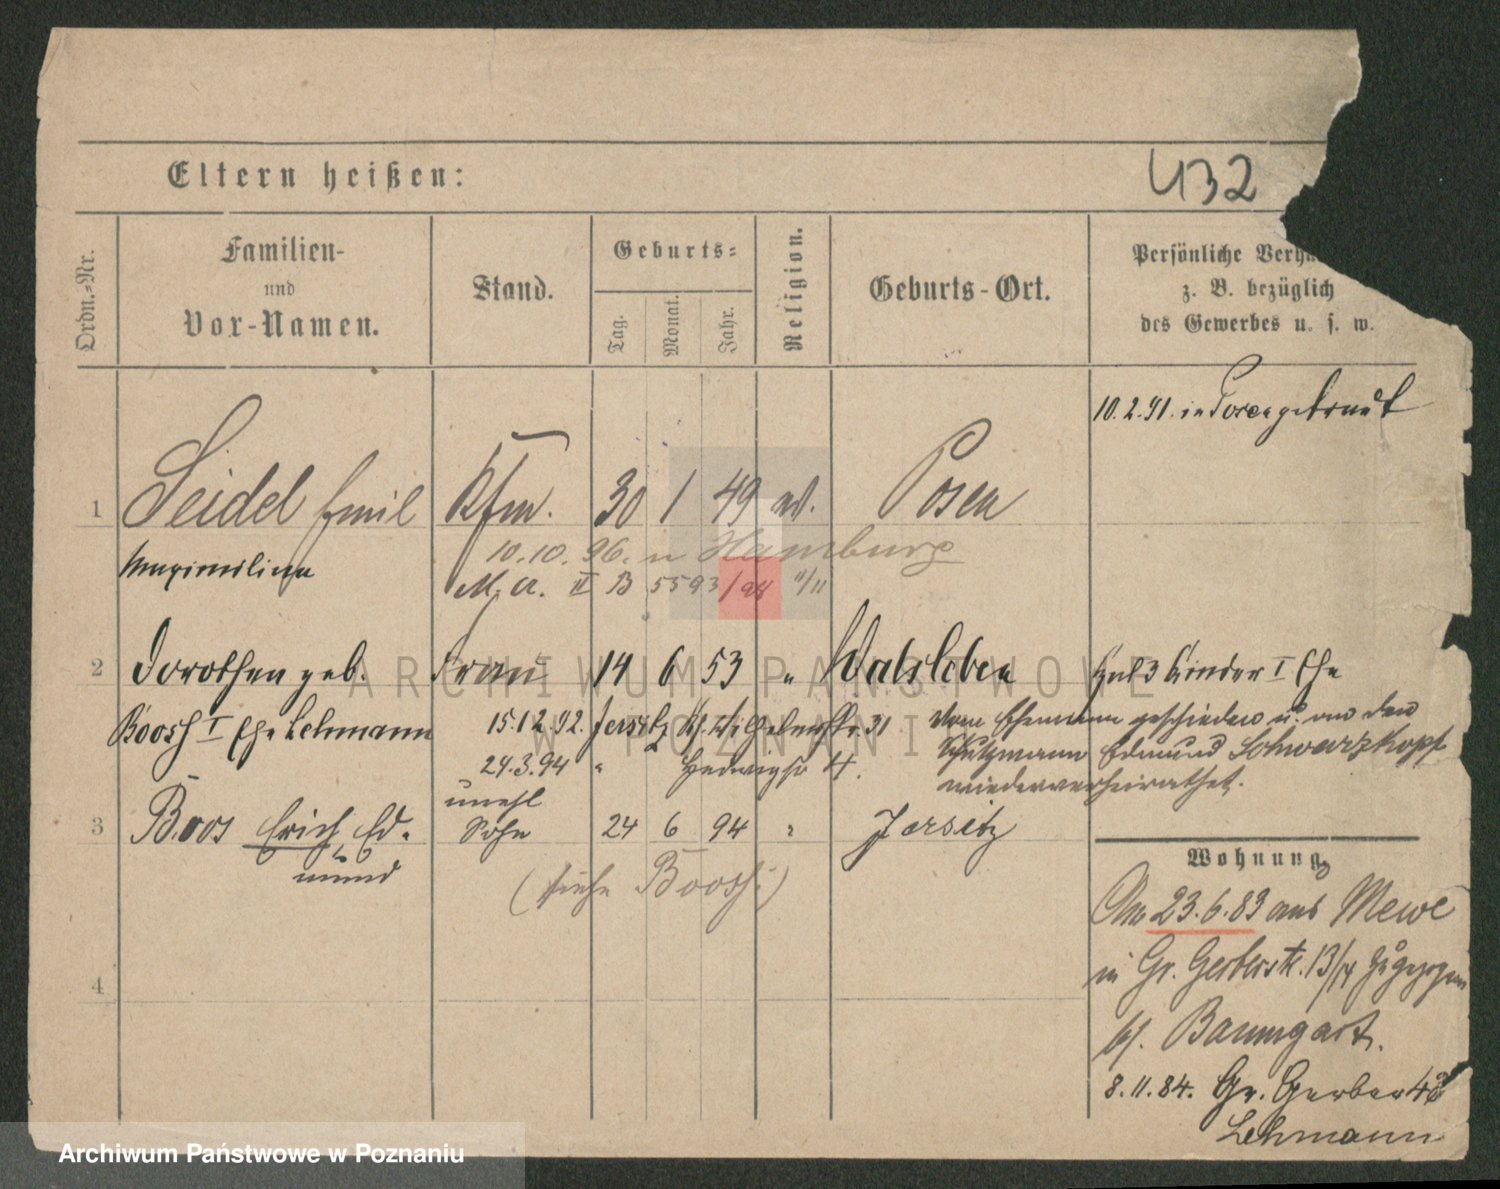 Eltern heißen:
432
Ordn.-Nr.
Familien-
und
Vor-Namen.
Stand.
Geburts-
Tag.
Monat.
Jahr.
Religion.
Geburts-Ort.
Persönliche Verh
z. B. bezüglich
des Gewerbes u. s. w.
10.2.91. in Posen getraut
1 Seidel Emil Kfm. 30 1 49 Posen
Maximilian
10.10.96. n Hamburg
M. a. II B 5593/98 11/11
2 Dorothea geb. Frau 14 6 53 " Walsleben hat 3 Kinder I Ehe
Boosh I Ehe Lehmann
15.12.92. Jersitz Kf. Wilhelmstr. 31
24.3.94 " Hedwigstr 14.
Vom Ehemann geschieden u. mit dem
Schutzmann Edmund Schwarzkopf
wiederverheirathet.
unehl
3 Boos Erich, Ed- Sohn 24 6 94 " Jersitz
mund
(siehe Boosh.)
4
Wohnung
Am 23.6.83 aus Mewe
in Gr. Gerberstr. 13/14 zugezogen
bf. Baumgart.
8.11.84. Gr. Gerber 48
Lehmann
ARCHIWUM PAŃSTWOWE
W POZNANIU
Archiwum Państwowe w Poznaniu